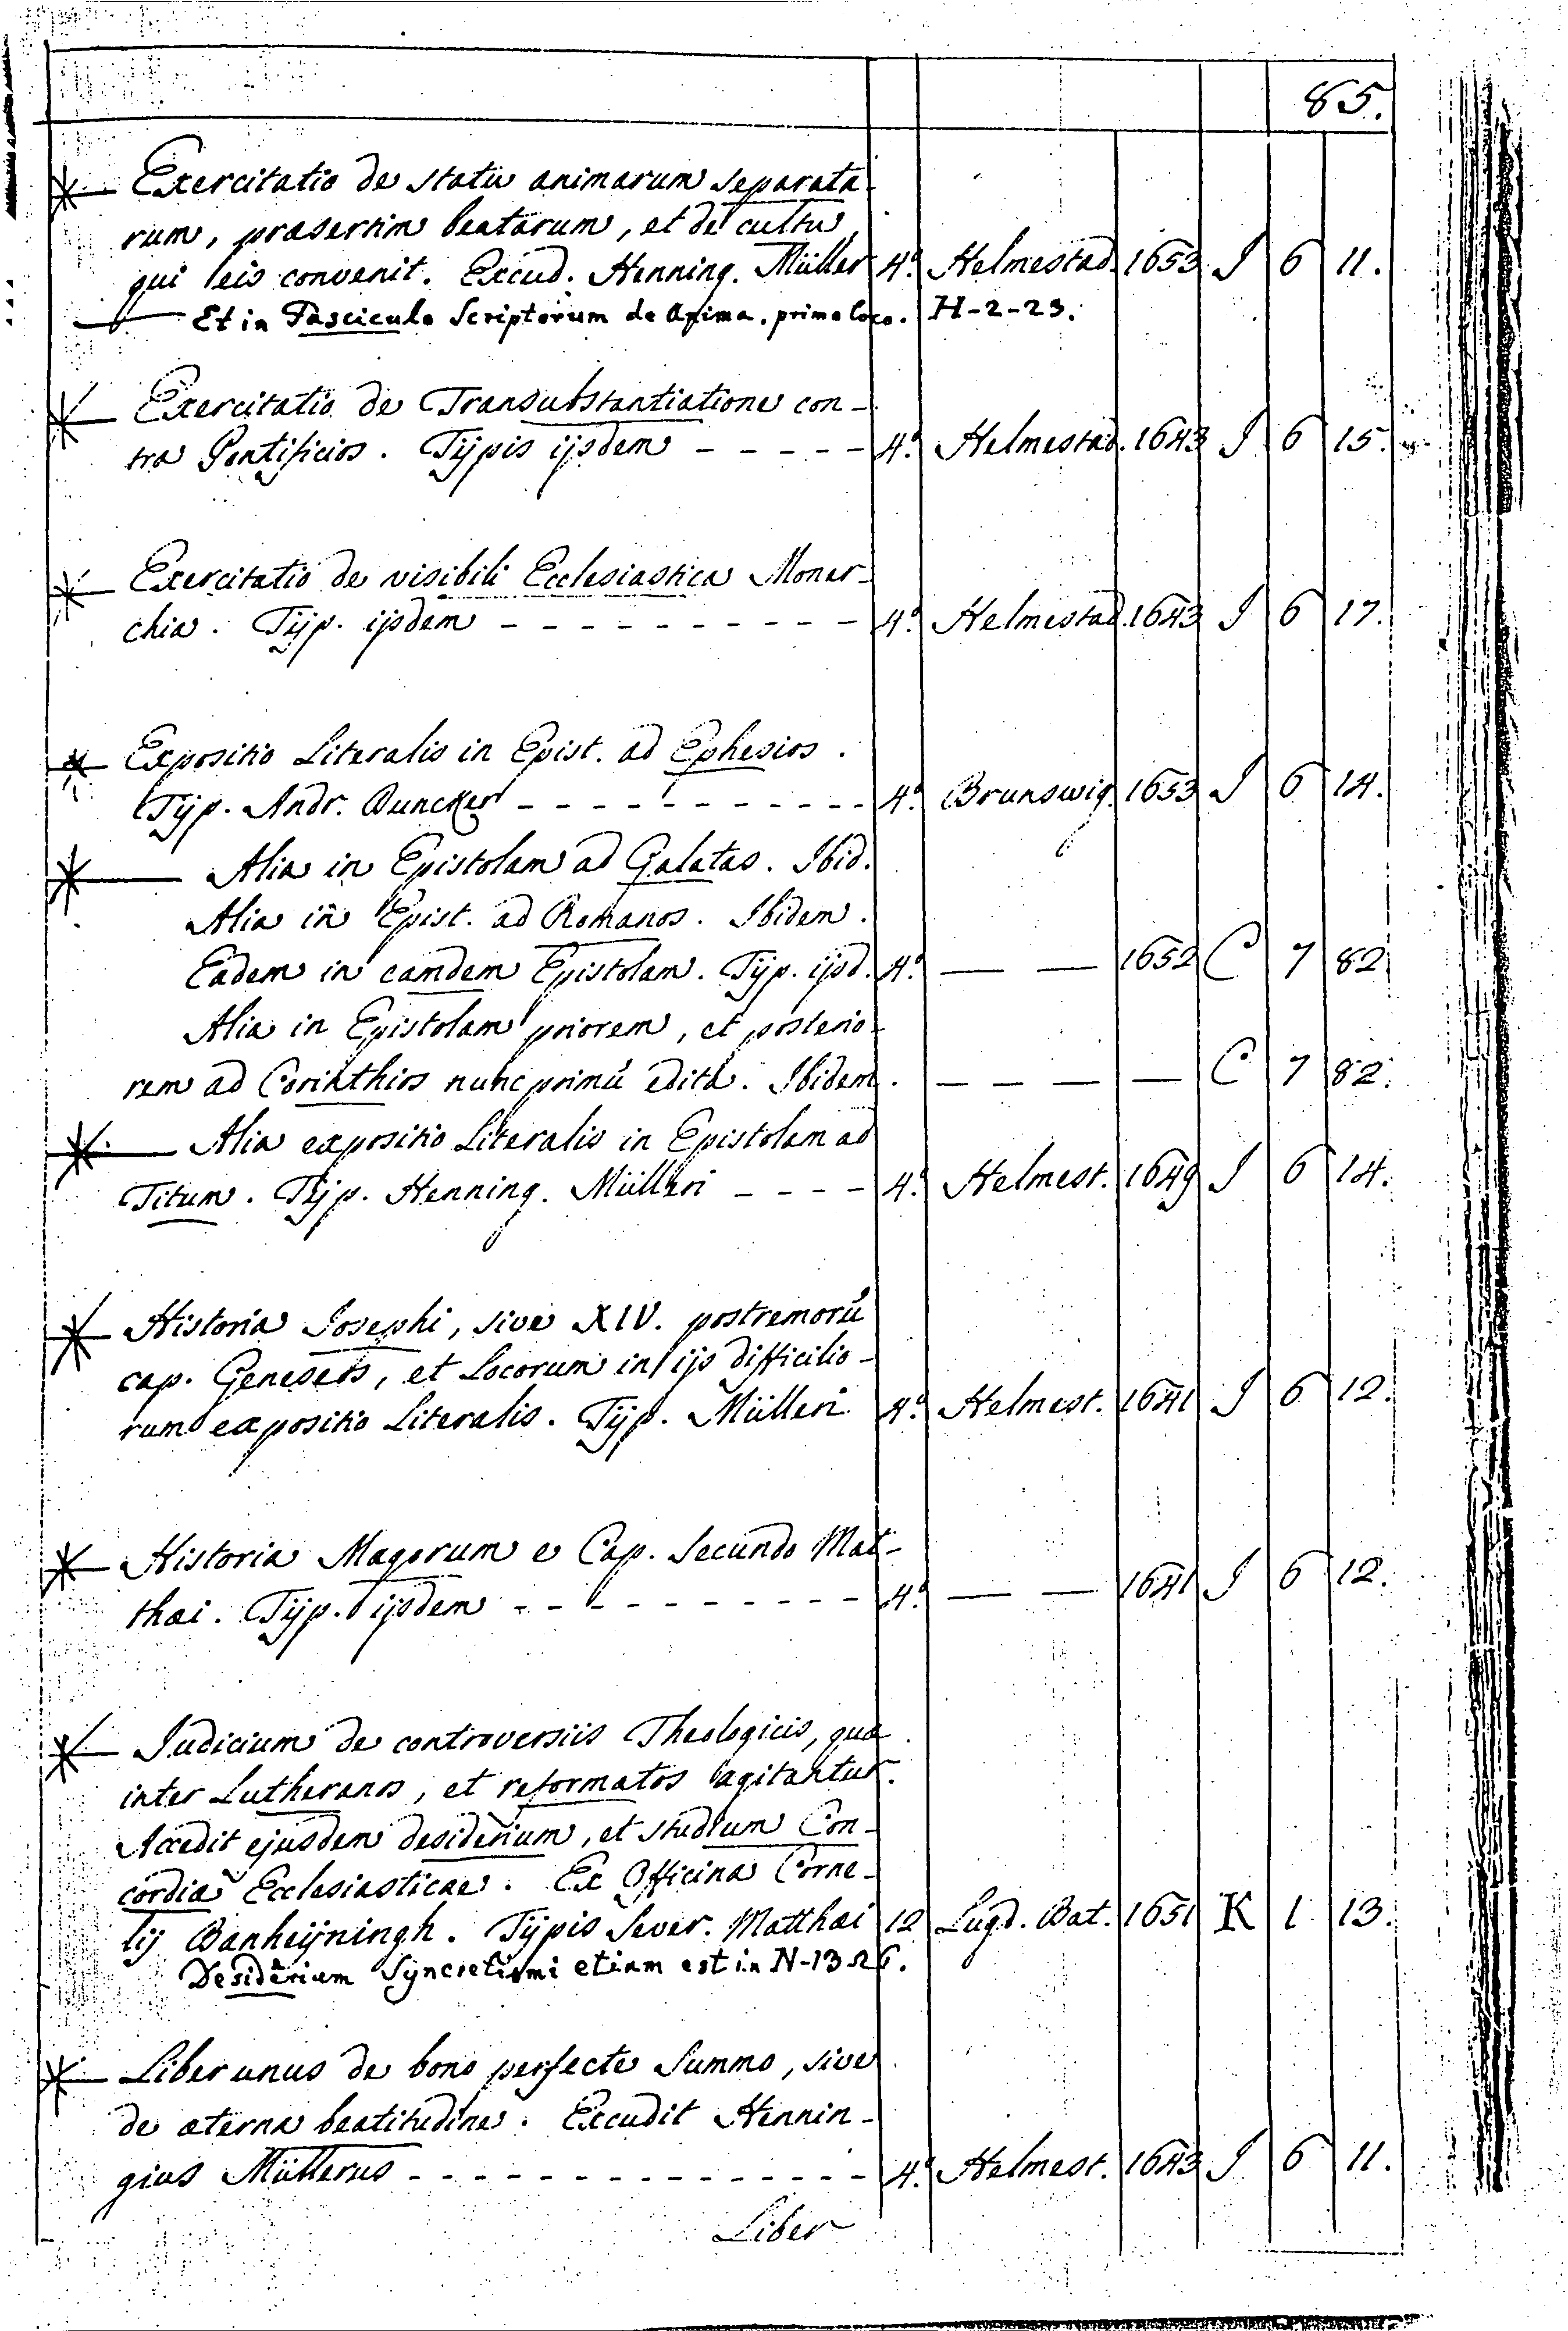 85.
Exercitatio de statu animarum separata
rum, præsertim beatarum, et de cultu
qui ieis convenit. Excud. Henning. Müller 4.º Helmestad. 1653 I 6 11.
Et in Fasciculo Scriptorum de Anima. primo loco. H-2-23.
Exercitatio de Transubstantiatione con-
tra Pontificios. Typis ijsdem - - - - - 4.º Helmestad. 1643 I 6 15.
Exercitatio de visibili Ecclesiastica Monar-
chia. Typ. ijsdem - - - - - - - - - - 4.º Helmestad. 1643 I 6 17.
Expositio Literalis in Epist. ad Ephesios.
Typ. Andr. Duncker - - - - - - - - - 4.º Brunswig. 1653 I 6 14.
Alia in Epistolam ad Galatas. Ibid.
Alia in Epist. ad Romanos. Ibidem.
Eadem in eamdem Epistolam. Typ. ijsd. 4.º — — 1652 C 7 82
Alia in Epistolam priorem, et posterio
rem ad Corinthios nunc primũ edita. Ibidem. — — — — C 7 82.
Alia expositio Literalis in Epistolam ad
Titum. Typ. Henning. Mülleri - - - - 4.º Helmest. 1649 I 6 14.
Historia Josephi, sive XIV. postremorũ
cap. Geneseos, et Locorum in ijs difficilio-
rum expositio Literalis. Typ. Mülleri 4.º Helmest. 1641 I 6 12.
Historia Magorum e Cap. Secundo Mat-
thæi. Typ. ijsdem - - - - - - - - - - 4.º — — 1641 I 6 12.
Judicium de controversiis Theologicis, quæ
inter Lutheranos, et reformatos agitantur.
Accedit ejusdem desiderium, et studium Con-
cordiæ Ecclesiasticae. Ex Officina Corne-
lij Banheijningh. Typis Sever. Matthæi 12 Lugd. Bat. 1651 K 1 13.
Desiderium Syncretismi etiam est in N-13 26.
Liber unus de bono perfecte Summo, sive
de æterna beatitudine. Excudit Hennin-
gius Müllerus - - - - - - - - - - - - - 4.º Helmest. 1643 I 6 11.
Liber